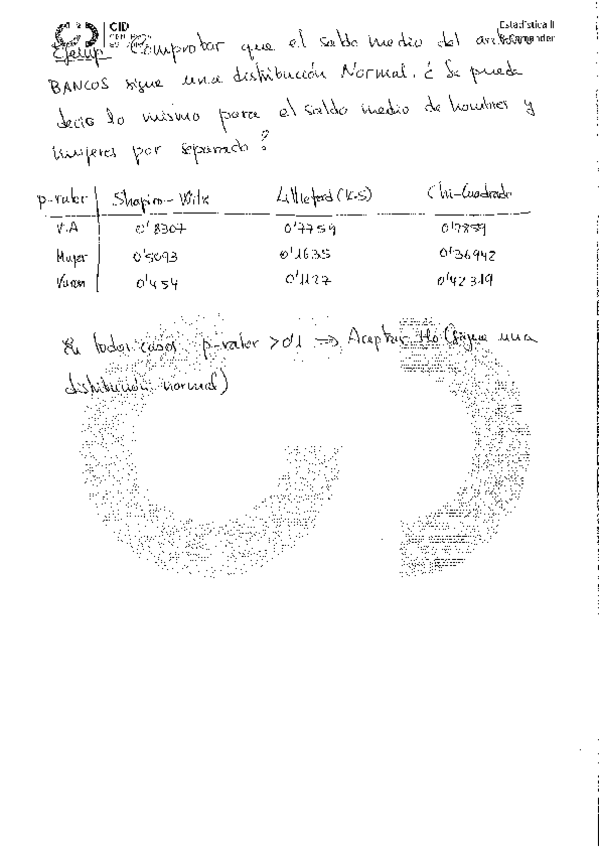 CID
Estadística II
Santander
Ejemp Comprobar que el saldo medio del archivo
BANCOS sigue una distribución Normal. ¿ Se puede
decir lo mismo para el saldo medio de hombres y
mujeres por separado?
p-valor Shapiro-Wilk Lillieford (K-S) Chi-Cuadrado
V.A 0'8307 0'7759 0'7859
Mujer 0'5093 0'1635 0'36942
Varon 0'454 0'1127 0'42319
En todos casos p-valor >0'1 => Aceptar Ho (sigue una
distribución normal)